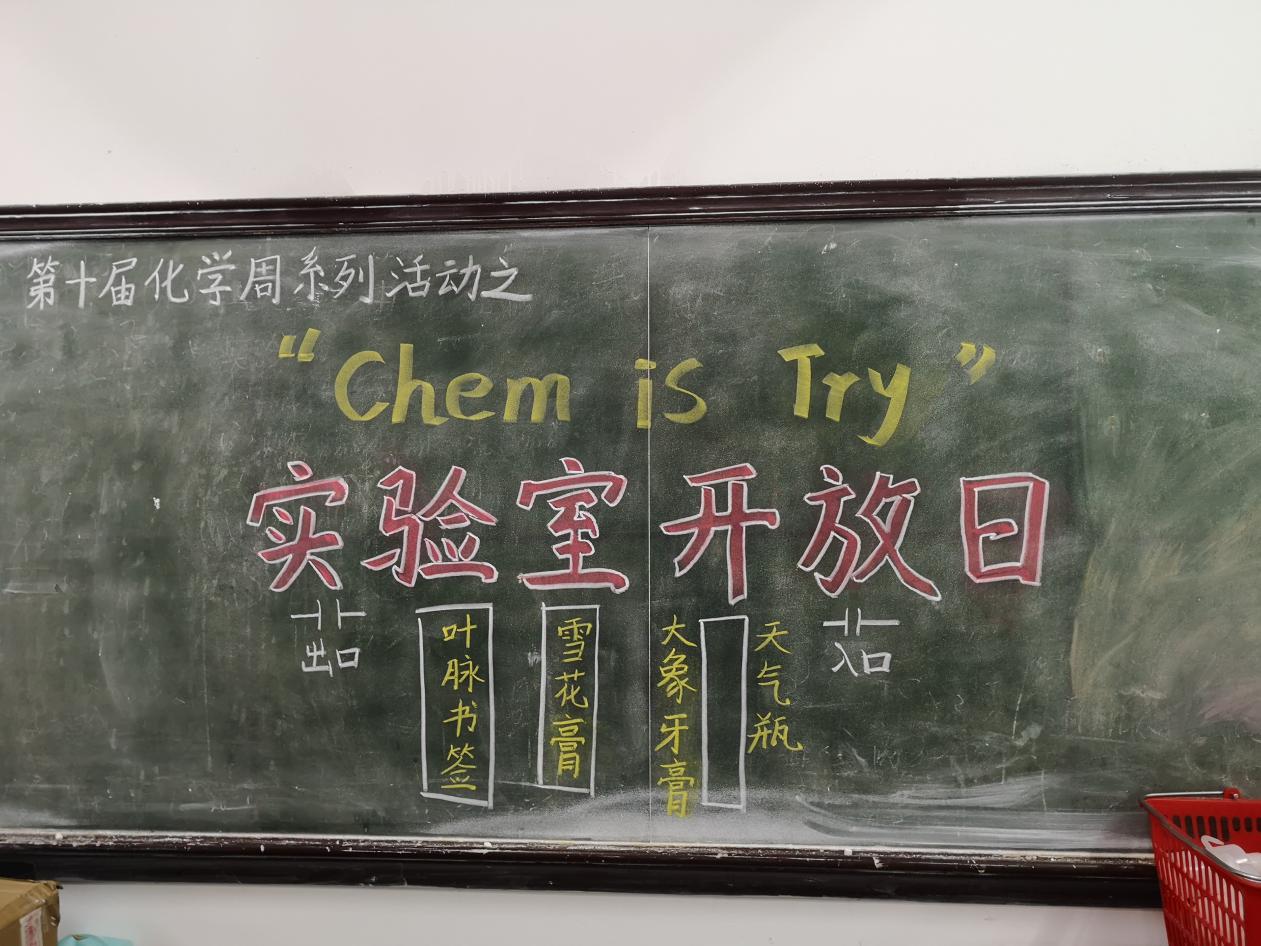 第十届化学周系列活动之
“Chem is Try”
实验室开放日
出口
叶脉书签
雪花膏
大象牙膏
天气瓶
入口